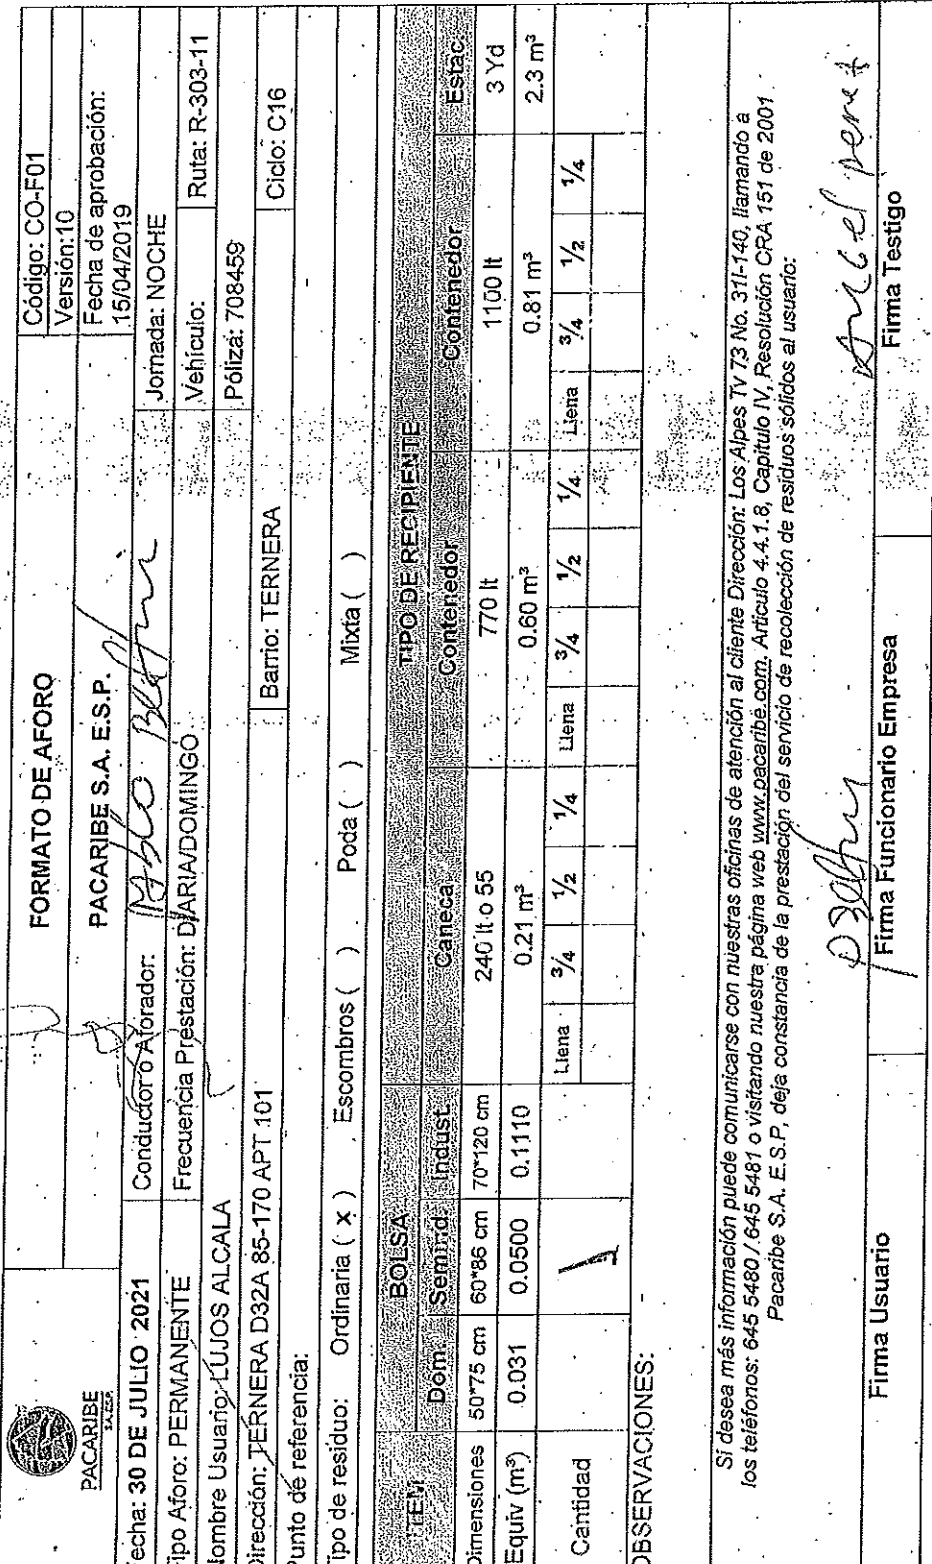 PACARIBE
S.A. E.S.P.
FORMATO DE AFORO
PACARIBE S.A. E.S.P.
Código: CO-F01
Versión:10
Fecha de aprobación:
15/04/2019
echa: 30 DE JULIO 2021 Conductor o Aforador: Pablo Beltrán Jornada: NOCHE
ipo Aforo: PERMANENTE Frecuencia Prestación: DIARIA/DOMINGO Vehículo: Ruta: R-303-11
ombre Usuario: LUJOS ALCALA Póliza: 708459
irección: TERNERA D32A 85-170 APT 101 Barrio: TERNERA Ciclo: C16
unto de referencia:
ipo de residuo: Ordinaria ( x ) Escombros ( ) Poda ( ) Mixta ( )
ITEM BOLSA TIPO DE RECIPIENTE
Dom. Semind. Indust. Caneca Contenedor Contenedor Estac.
Dimensiones 50*75 cm 60*86 cm 70*120 cm 240 lt o 55 770 lt 1100 lt 3 Yd
Equiv (m³) 0.031 0.0500 0.1110 0.21 m³ 0.60 m³ 0.81 m³ 2.3 m³
Cantidad 1 Llena 3/4 1/2 1/4 Llena 3/4 1/2 1/4 Llena 3/4 1/2 1/4
OBSERVACIONES:
Si desea más información puede comunicarse con nuestras oficinas de atención al cliente Dirección: Los Alpes Tv 73 No. 31I-140, llamando a
los teléfonos: 645 5480 / 645 5481 o visitando nuestra página web www.pacaribe.com. Artículo 4.4.1.8, Capítulo IV, Resolución CRA 151 de 2001
Pacaribe S.A. E.S.P, deja constancia de la prestación del servicio de recolección de residuos sólidos al usuario:
Firma Usuario Firma Funcionario Empresa Firma Testigo